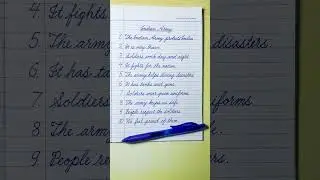 Indian Army
1. The Indian Army protects India.
2. It is very brave.
3. Soldiers work day and night.
4. It fights for the nation.
5. The army helps during disasters.
6. It has tanks and guns.
7. Soldiers wear green uniforms.
8. The army keeps us safe.
9. People respect the soldiers.
10. We feel proud of them.
4. It fights
5. The army
disasters.
6. It has ta
7. Soldiers
iforms.
8. The army
9. People re